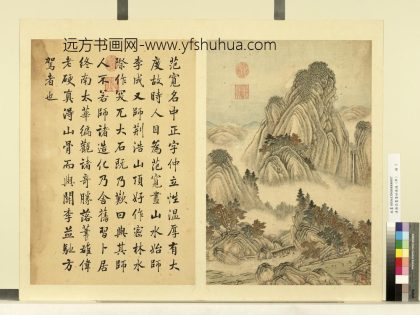 远方书画网-www.yfshuhua.com
范寬名中正字仲立性溫厚有大
度故時人目為范寬畫山水始師
李成又師荊浩山頂好作密林水
際作突兀大石既乃歎曰與其師
人不若師諸造化乃舍舊習卜居
終南太華徧觀諸奇勝落筆雄偉
老硬真得山骨而與關李並馳方
駕者也